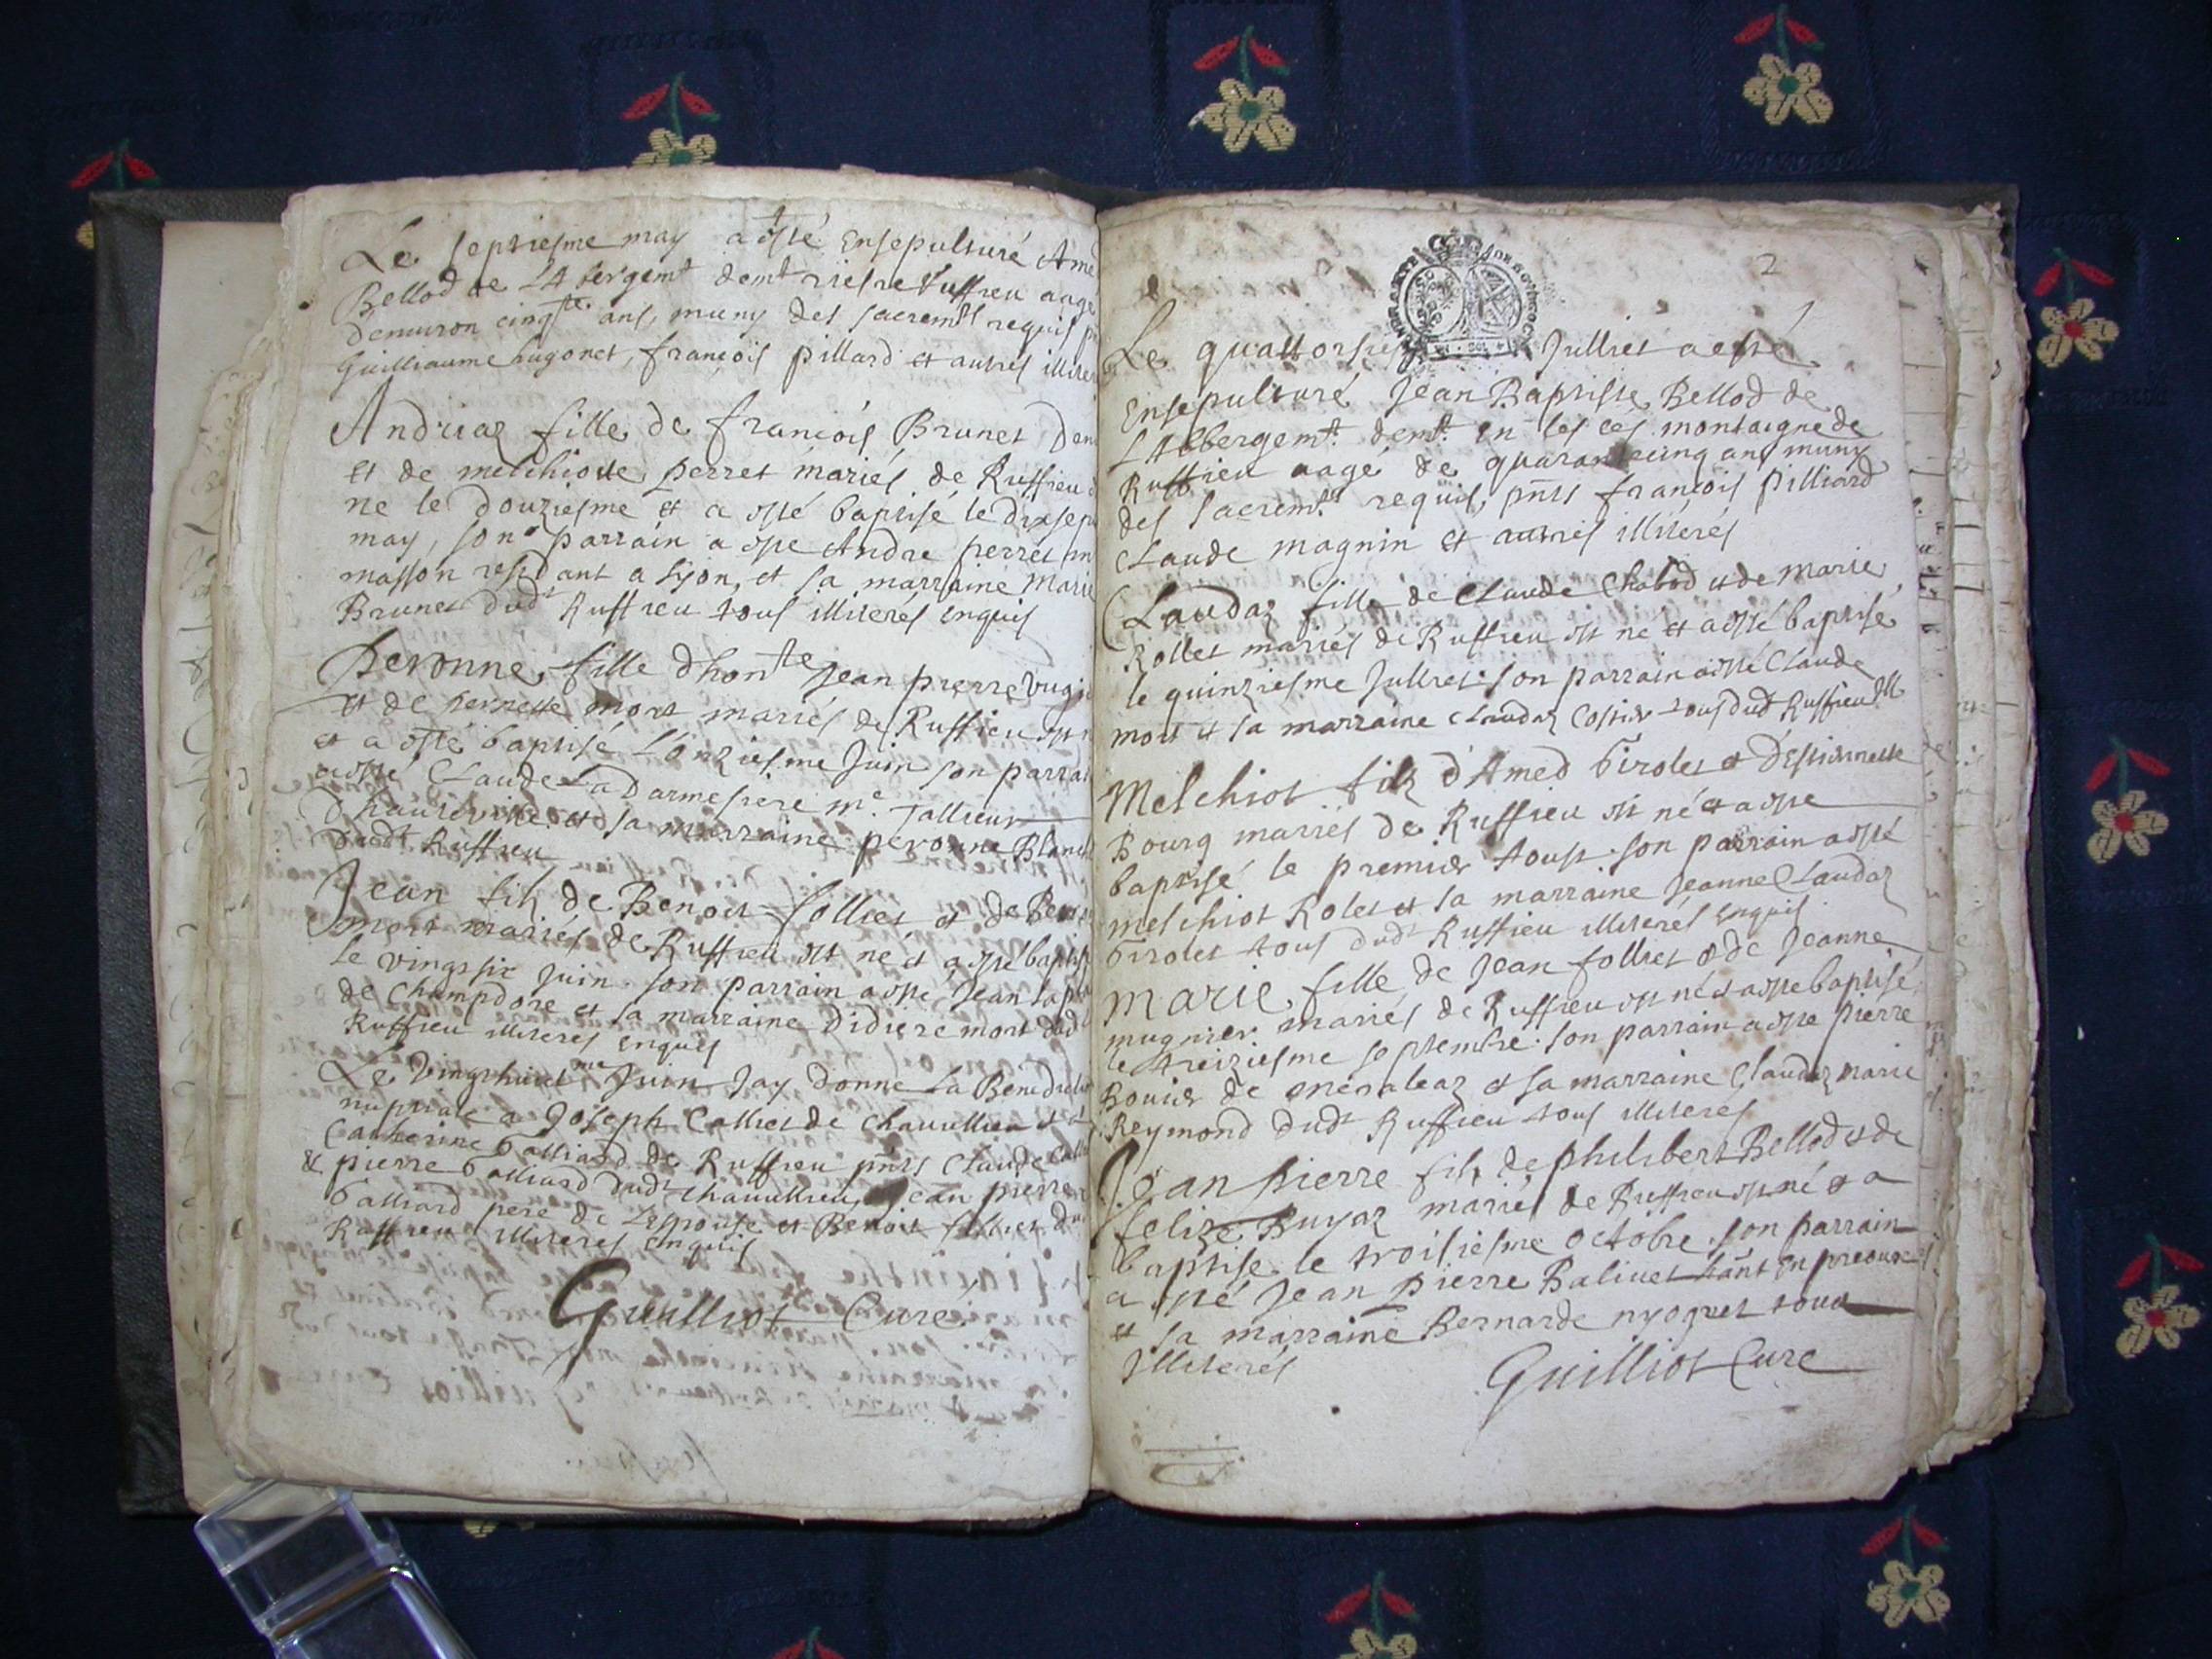 Le septiesme may a esté Ensepulturé Ame
Bellod de LAbergemt demt riere Ruffieu aage
denuiron cinqte ans, muny des sacremts requis
Guilliaume hugonet, françois pillard et autres illiter
Andriaz fille de françois Brunet
et de melchiotte perret mariés de Ruffieu
ne le douziesme et a esté baptisé le dixsep
may, son parrain a este Andre perret
masson residant a Lyon, et sa marraine Marie
Brunet dudt Ruffieu tous illiterés enquis
Peronne fille dhonte Jean pierre
et de pernette mort mariés de Ruffieu est
et a esté baptisé L'onziesme Juin son parrai
a esté Claude Ladarmesiere me. Tallieur
Dhauteville et sa marraine peronne Blanch
dudt Ruffieu
Jean filz de Benoit folliet et de
mort mariés de Ruffieu est ne et a esté baptis
le vingtsix Juin son parrain a este Jean
de Champdore et sa marraine Didiere mort dud
Ruffieu illiteres enquis
Le vingthuictme Juin Jay donné La Benedict
nuptiale a Joseph Calliet de Chauillieu et a
Catherine Galliard de Ruffieu pnts Claude
& pierre Galliard dudt Chauillieu, Jean pierre
Galliard pere de Lespouse et Benoit folliet du
Ruffieu illiteres enquis
Guilliot Curé
2
Le quattorsies Julliet a esté
Ensepulturé Jean Baptiste Bellod de
LAbbergemt. demt. en les montaigne de
Ruffieu aagé de quarantecinq ans muny
des sacremts requis, pnts françois pilliard
Claude magnin et autres illiterés
Claudaz fille de Claude Chabod et de Marie
Rollet mariés de Ruffieu est ne et a esté baptisé
le quinziesme Julliet son parrain a esté Claude
mort et sa marraine Claudaz Costier tous dudt Ruffieu Ill
Melchiot filz d'Amed Girolet et d'Estiennette
Bourg mariés de Ruffieu est né et a este
baptisé le premier Aoust son parrain a esté
melchiot Rolet et sa marraine Jeanne Claudaz
Girolet tous dudt Ruffieu illiterés enquis
Marie fille de Jean folliet & de Jeanne
mugnier mariés de Ruffieu est né et a este baptisé
le treiziesme septembre son parrain a este pierre
Bouier de et sa marraine Claudaz marie
Reymond dudt Ruffieu tous illiterés
Jean pierre filz de philibert Bellod et de
felize Buyaz mariés de Ruffieu est né & a
baptise le troisiesme octobre son parrain
a esté Jean pierre Balivet
et sa marraine Bernarde nyogret tous
Illiterés
Guilliot Cure